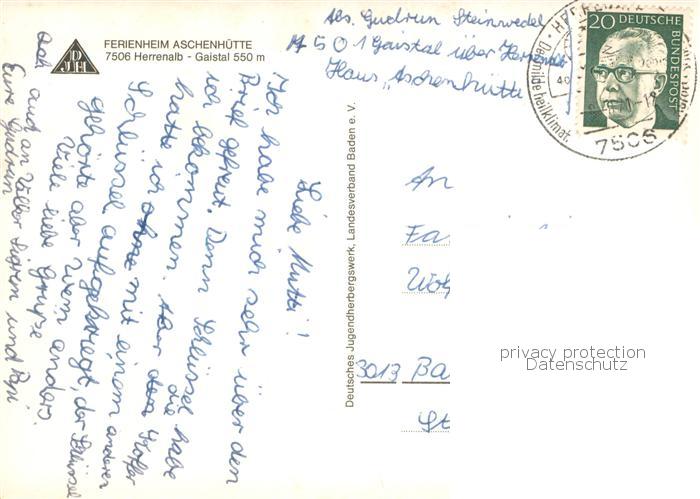 DJH
FERIENHEIM ASCHENHÜTTE
7506 Herrenalb - Gaistal 550 m
Abs. Gudrun Steinwedel
7501 Gaistal über Herrenalb
Haus „Aschenhütte
20 DEUTSCHE
BUNDESPOST
7506
Liebe Mutti!
Ich habe mich sehr über den
Brief gefreut. Denn Schlüssel habe
ich bekommen. Aber den Koffer
hatte ich mit einem anderen
Schlüssel aufgekriegt, der Schlüssel
gehörte aber wem anders.
Viele liebe Grüße
auch an Volker Sigrun und Papi
Eure Gudrun
Deutsches Jugendherbergswerk, Landesverband Baden e. V.
An
Fa
3013 Ba
St
privacy protection
Datenschutz